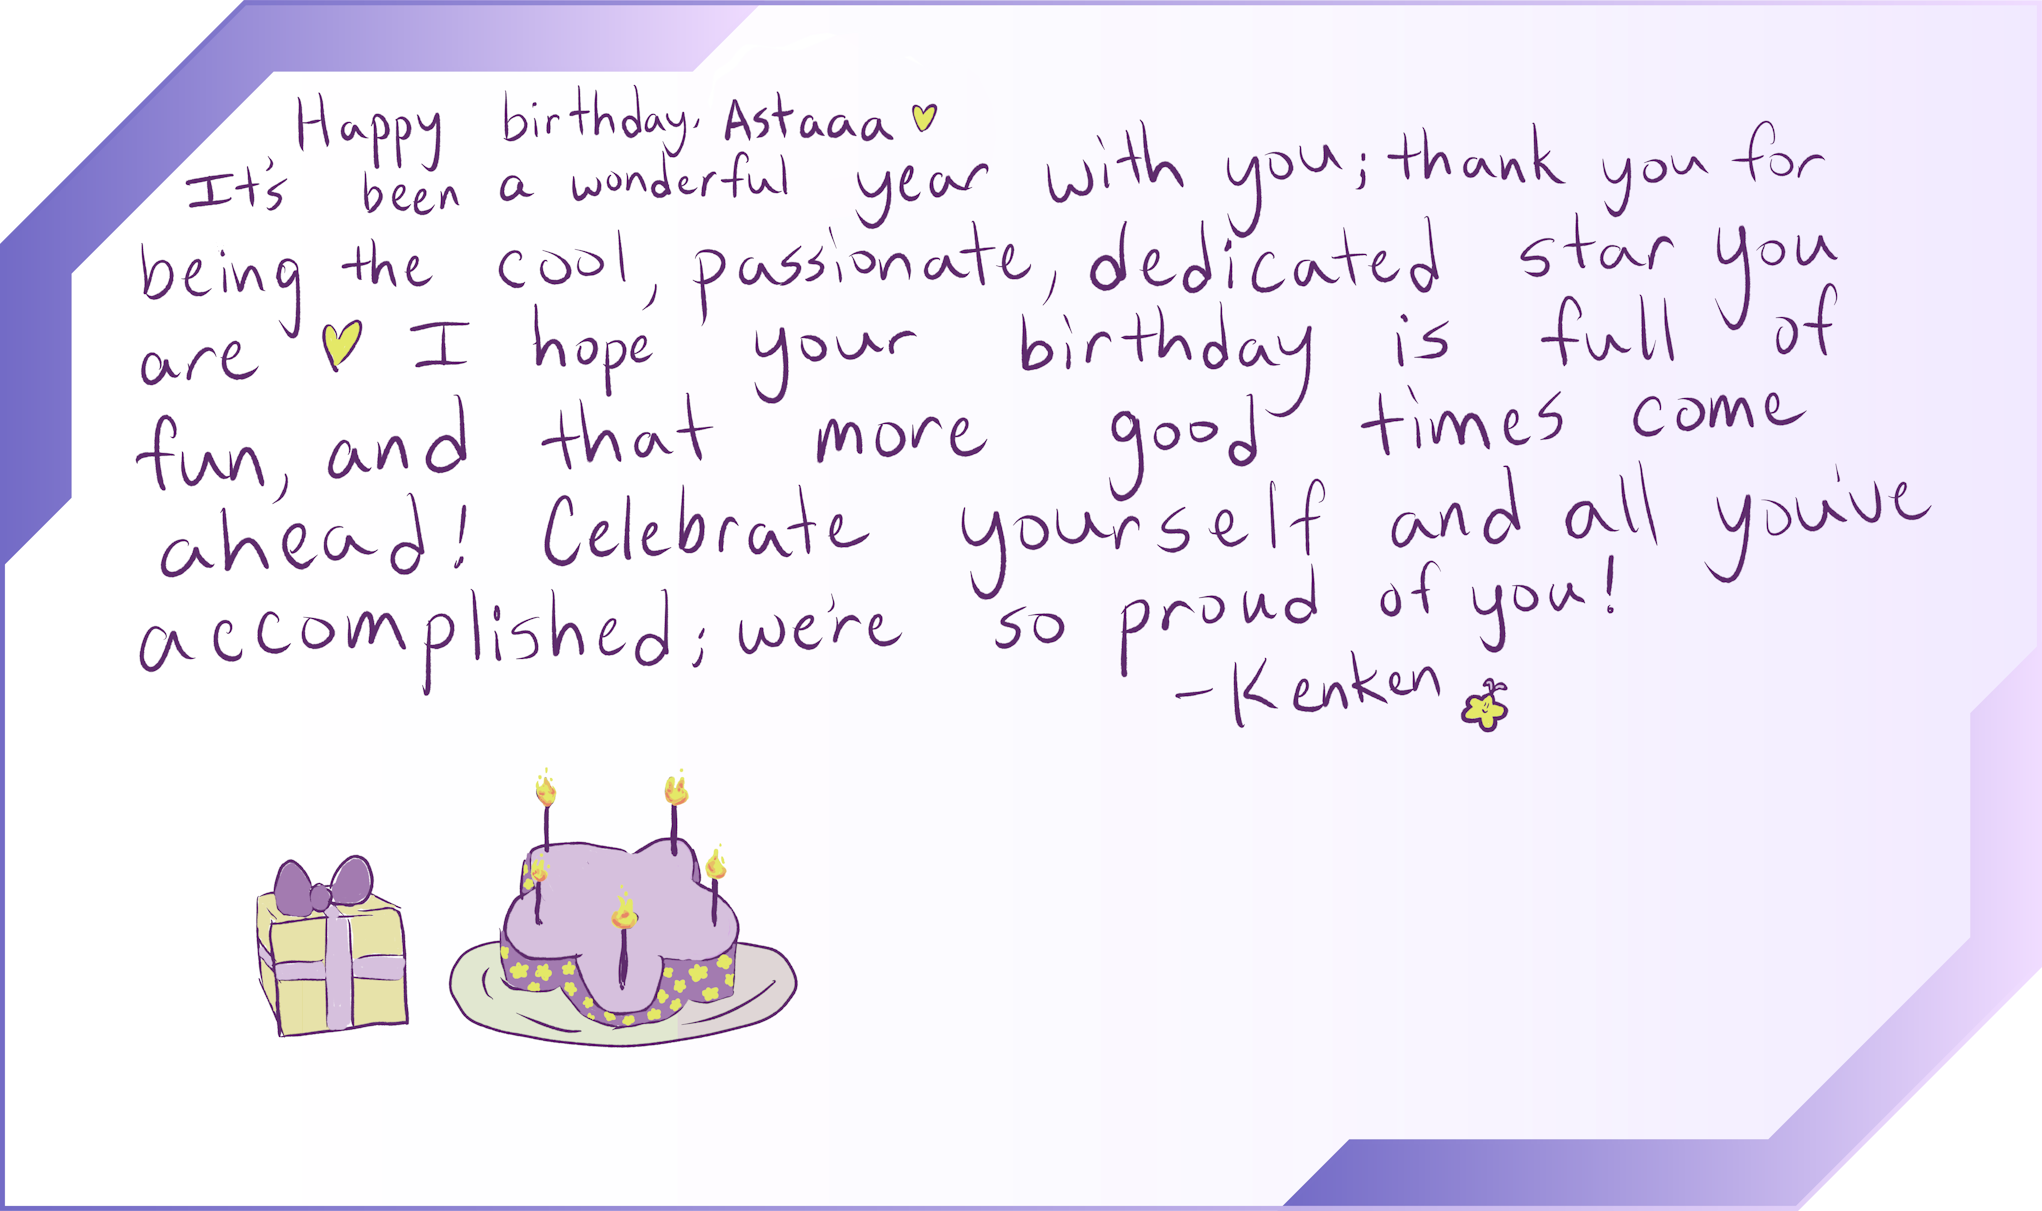 Happy birthday, Astaaa ♡
It's been a wonderful year with you; thank you for
being the cool, passionate, dedicated star you
are ♡ I hope your birthday is full of
fun, and that more good times come
ahead! Celebrate yourself and all you've
accomplished; we're so proud of you!
-Kenken